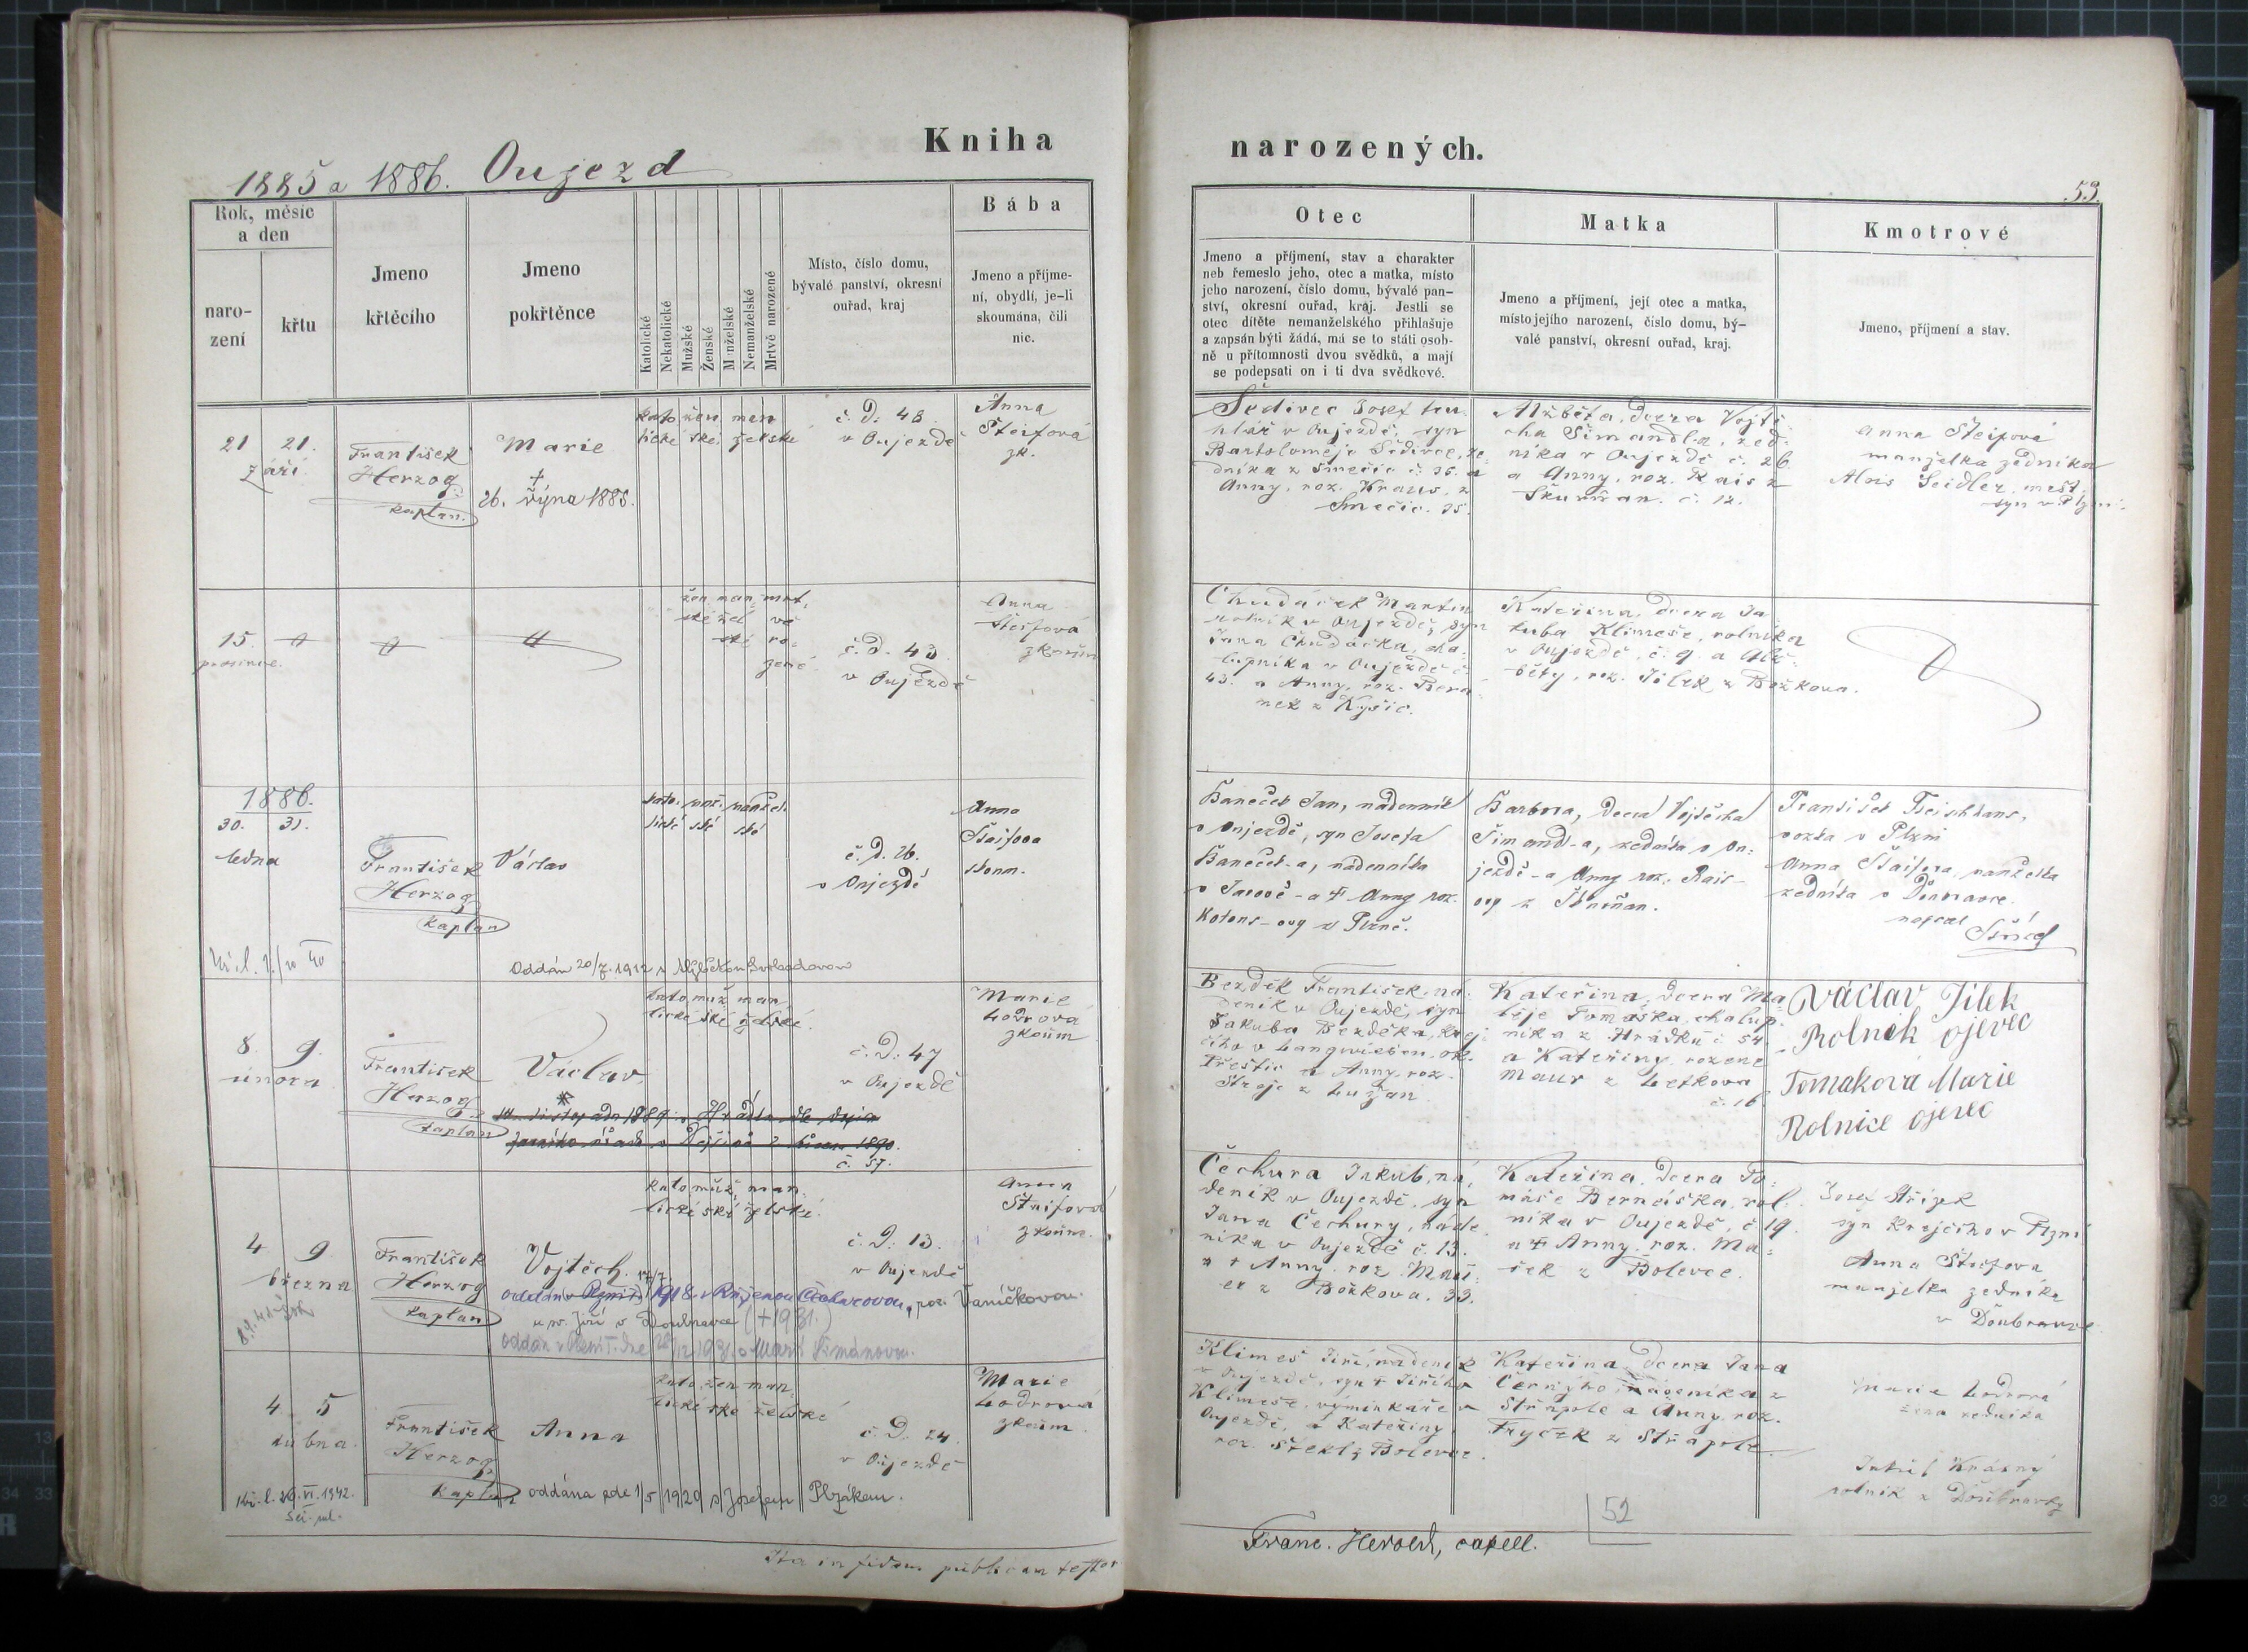 Kniha
narozených.
1885 a 1886. Oujezd
53.
Rok, měsíc
a den
naro-
zení
křtu
Jmeno
křtěcího
Jmeno
pokřtěnce
Katolické
Nekatolické
Mužské
Ženské
Manželské
Nemanželské
Mrtvě narozené
Místo, číslo domu,
bývalé panství, okresní
ouřad, kraj
Bába
Jmeno a příjme-
ní, obydlí, je-li
skoumána, čili
nic.
Otec
Jmeno a příjmení, stav a charakter
neb řemeslo jeho, otec a matka, místo
jeho narození, číslo domu, bývalé pan-
ství, okresní ouřad, kraj. Jestli se
otec dítěte nemanželského přihlašuje
a zapsán býti žádá, má se to státi osob-
ně u přítomnosti dvou svědků, a mají
se podepsati on i ti dva svědkové.
Matka
Jmeno a příjmení, její otec a matka,
místo jejího narození, číslo domu, bý-
valé panství, okresní ouřad, kraj.
Kmotrové
Jmeno, příjmení a stav.
21 21.
září
František
Herzog
kaplan.
Marie
†
26. října 1885.
kato žen man
lické ské želské
č. D. 48
v Oujezdě
Anna
Šteifová
zk.
Šedivec Josef tru-
hlář v Oujezdě, syn
Bartoloměje Šedivce, ze-
dníka z Smečic č. 35. a
Anny, roz. Kraus, z
Smečic. 35.
Alžběta, dcera Vojtě-
cha Šimandla, zed-
níka v Oujezdě č. 26.
a Anny, roz. Rais z
Škurňan. č. 12.
Anna Šteifová
manželka zedníka
Alois Seidler, měšť.
syn v Plzni.
15.
prosince.
žen man mrt
ské žel vě
ské ro-
zené
č. D. 43
v Oujezdě
Anna
Šteifová
zkoum
Chudáček Martin
rolník v Oujezdě, syn
Jana Chudáčka, cha-
lupníka v Oujezdě č.
43. a Anny, roz. Bera-
nek z Kyšic.
Kateřina, dcera Ja-
kuba Klimeše, rolníka
v Oujezdě, č. 9. a Alž-
běty, roz. Jílek z Božkova.
1886.
30. 31.
ledna
František
Herzog
kaplan
Václav
kato- muž- manžel-
lické ské ské
č. d. 26.
v Oujezdě
Anna
Štaifova
skoum.
Oddán 20/7. 1912 s
Haneček Jan, nádenník
v Oujezdě, syn Josefa
Haneček-a, nádenníka
v Jarově - a † Anny roz.
Barbora, dcera Vojtěcha
Šimandl-a, zedníka v Ou-
jezdě - a Anny roz. Rais-
ový z Škurňan.
František
v Plzni
Anna Štaifova manželka
zedníka v Doubravce.
napsal
8 9.
února
František
Herzog
kaplan
Václav.
kato muž man
lické ské želské.
č. D. 47
v Oujezdě
Marie
Lodrová
zkoum
č. 57.
Bezděk František ná-
deník v Oujezdě, syn
Jakuba Bezděka, krej-
čího v
Přeštic a Anny roz.
z Lužan
Kateřina, dcera Ma-
těje Tomáška, chalup-
níka z Hrádku č 54
a Kateřiny, rozené
Maur z Letkova
č. 16
Václav Jílek
Rolník ojevec
Tomaková Marie
Rolnice ojevec
4 9
března
František
Herzog
kaplan
Vojtěch.
kato muž man
lické ské želské.
č. D. 13.
v Oujezdě
Anna
Štaifová
zkoum.
17/7.
oddán v Plzni 1918 s Růženou Čechurovou, roz. Vaníčkovou.
u sv. Jiří v Doubravce († 1931.)
Čechura Jakub, ná-
deník v Oujezdě, syn
Jana Čechury, náde-
níka v Oujezdě č. 13.
a † Anny roz.
z Božkova. 33.
Kateřina, dcera To-
máše Bernáška, rol-
níka v Oujezdě, č 19.
a † Anny, roz. Ma-
šek z Bolevce.
Josef Střízek
syn krejčího v Plzni
Anna Šteifova
manželka zedníka
v Doubravce
4 5
dubna.
František
Herzog
kaplan
Anna
kato žen man
lické ské želské
č. D. 24.
v Oujezdě
Marie
Lodrová
zkoum.
Kř. l. 26. VI. 1942.
oddána zde 1/5 1920 s Josefem Plzákem.
Klimeš Jiří, nádeník
v Oujezdě, syn † Jiřího
Klimeše, výminkaře v
Oujezdě, a Kateřiny
roz. Štekl z Bolevce.
Kateřina, dcera Jana
Černýho, nádeníka z
Střapole a Anny, roz.
Fryček z Střapole.
Marie Lodrová
žena zedníka
Jakub Krásný
rolník z Doubravky
52
Ita in fidem publicam testor
Franc. Herold, capell.